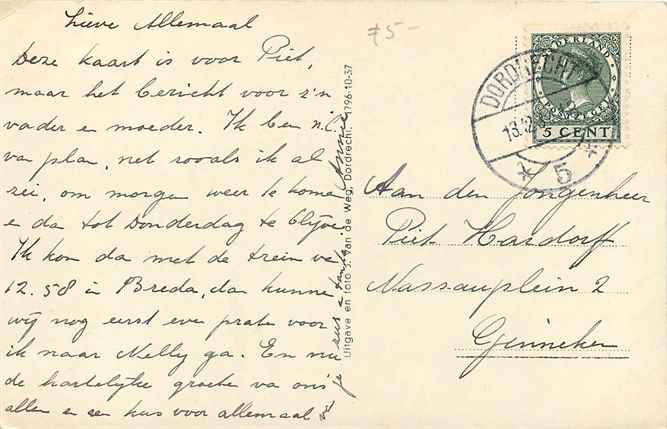 Lieve Allemaal
Deze kaart is voor Piet,
maar het bericht voor z'n
vader en moeder. Ik ben n.l.
va plan, net zooals ik al
zei, om morgen weer te kome
e da tot Donderdag te blijve
Ik kom da met de trein va
12.58 in Breda, dan kunne
wij nog eerst eve prate voor
ik naar Nelly ga. En nu
de hartelijke groete va ons
allen e een kus voor allemaal
je zus e tante
Uitgave en foto J. van de Weg, Dordrecht. 1796-10-37
75-
NEDERLAND
POSTZEGEL
5 CENT
DORDRECHT
13.12
5
Aan den Jongenheer
Piet Hasdorff
Nassauplein 2
Ginneken